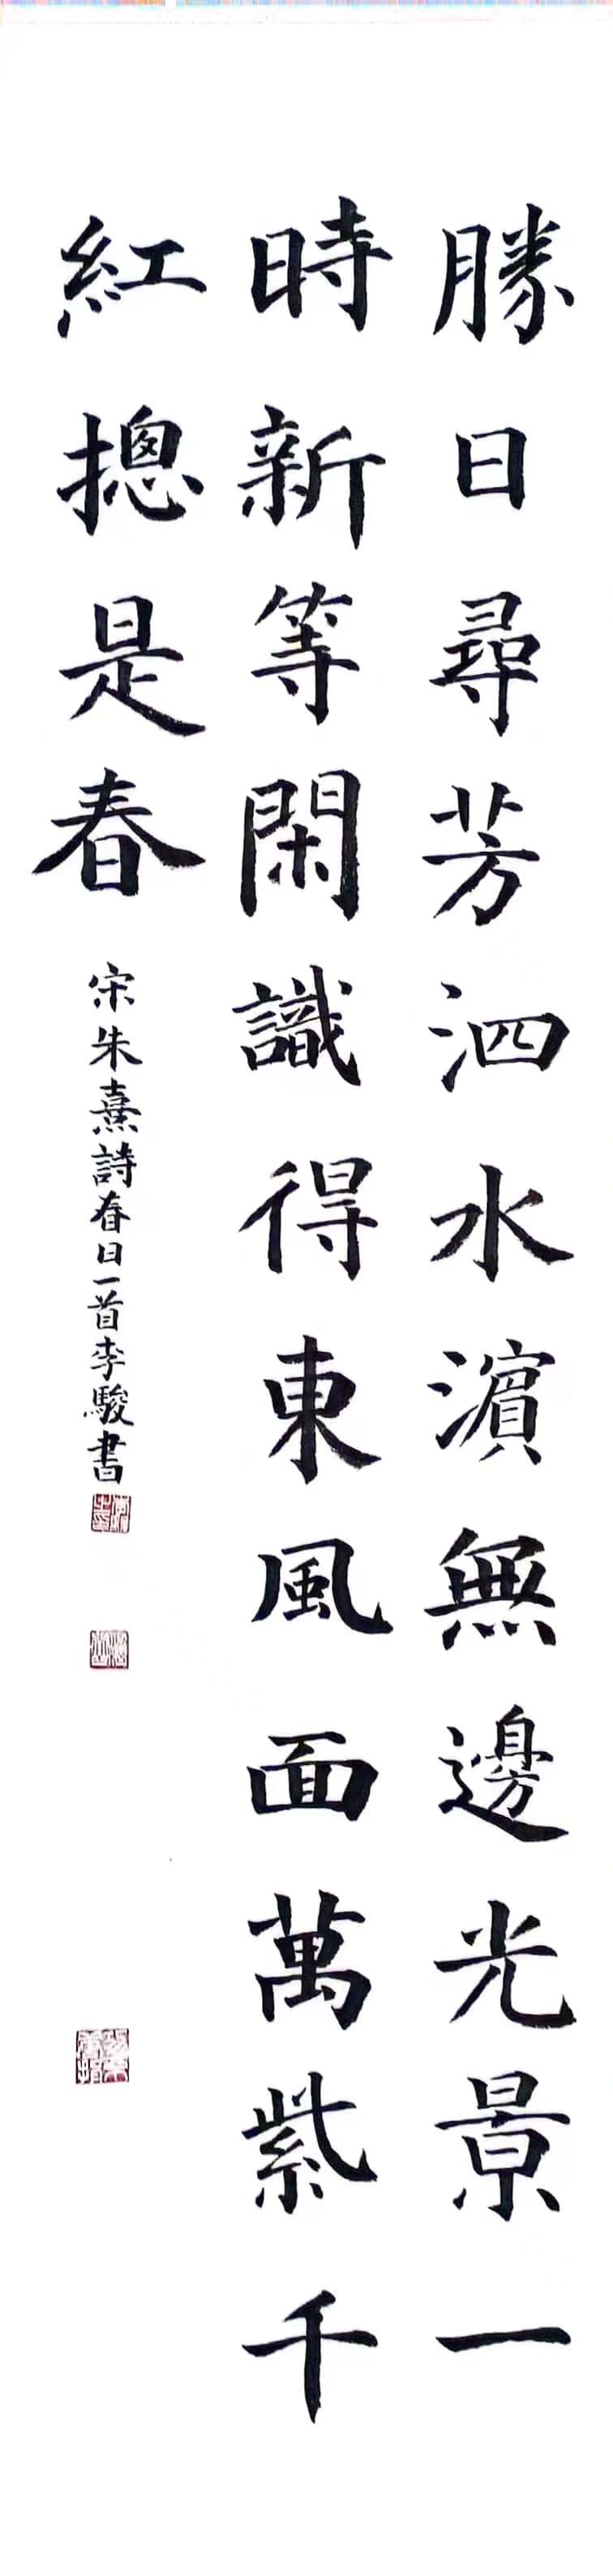 勝日尋芳泗水濵無邊光景一
時新等閑識得東風面萬紫千
紅摠是春
宋朱熹詩春日一首李駿書